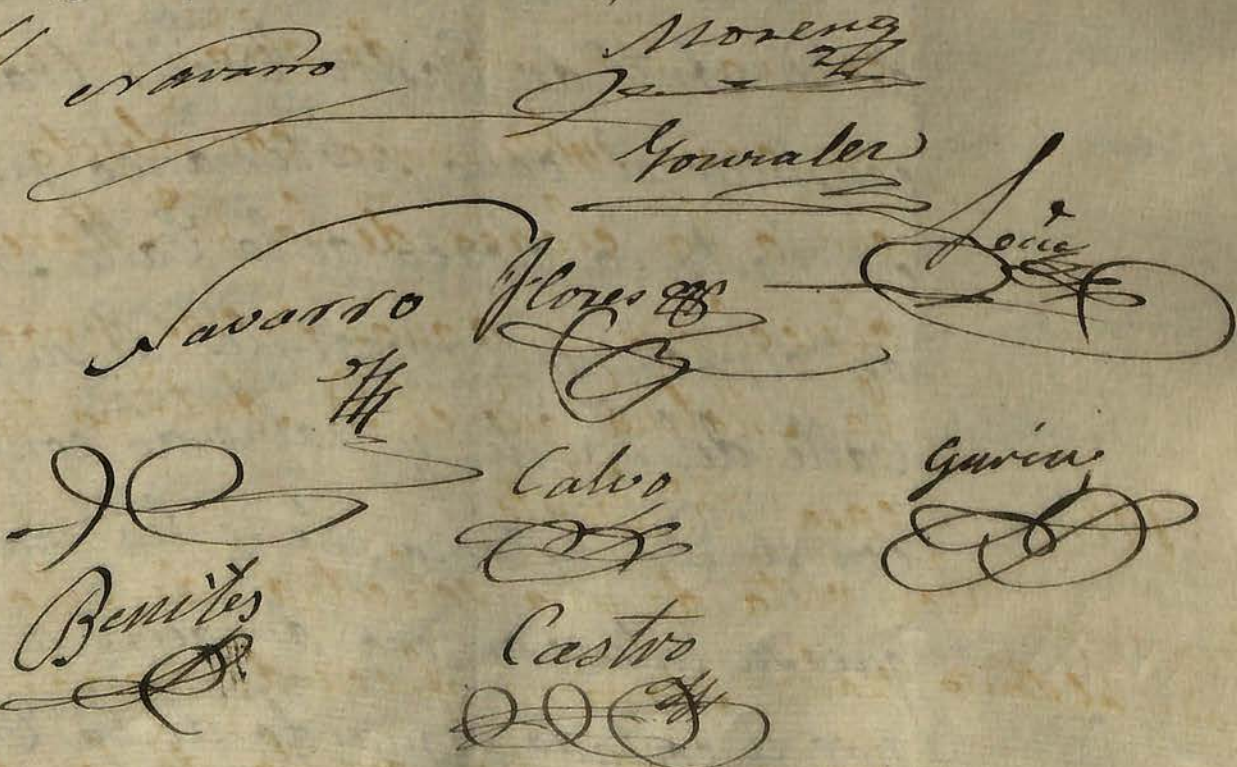 Navarro Moreno
Gonzalez
Navarro Flores
Calvo
Benites Castro